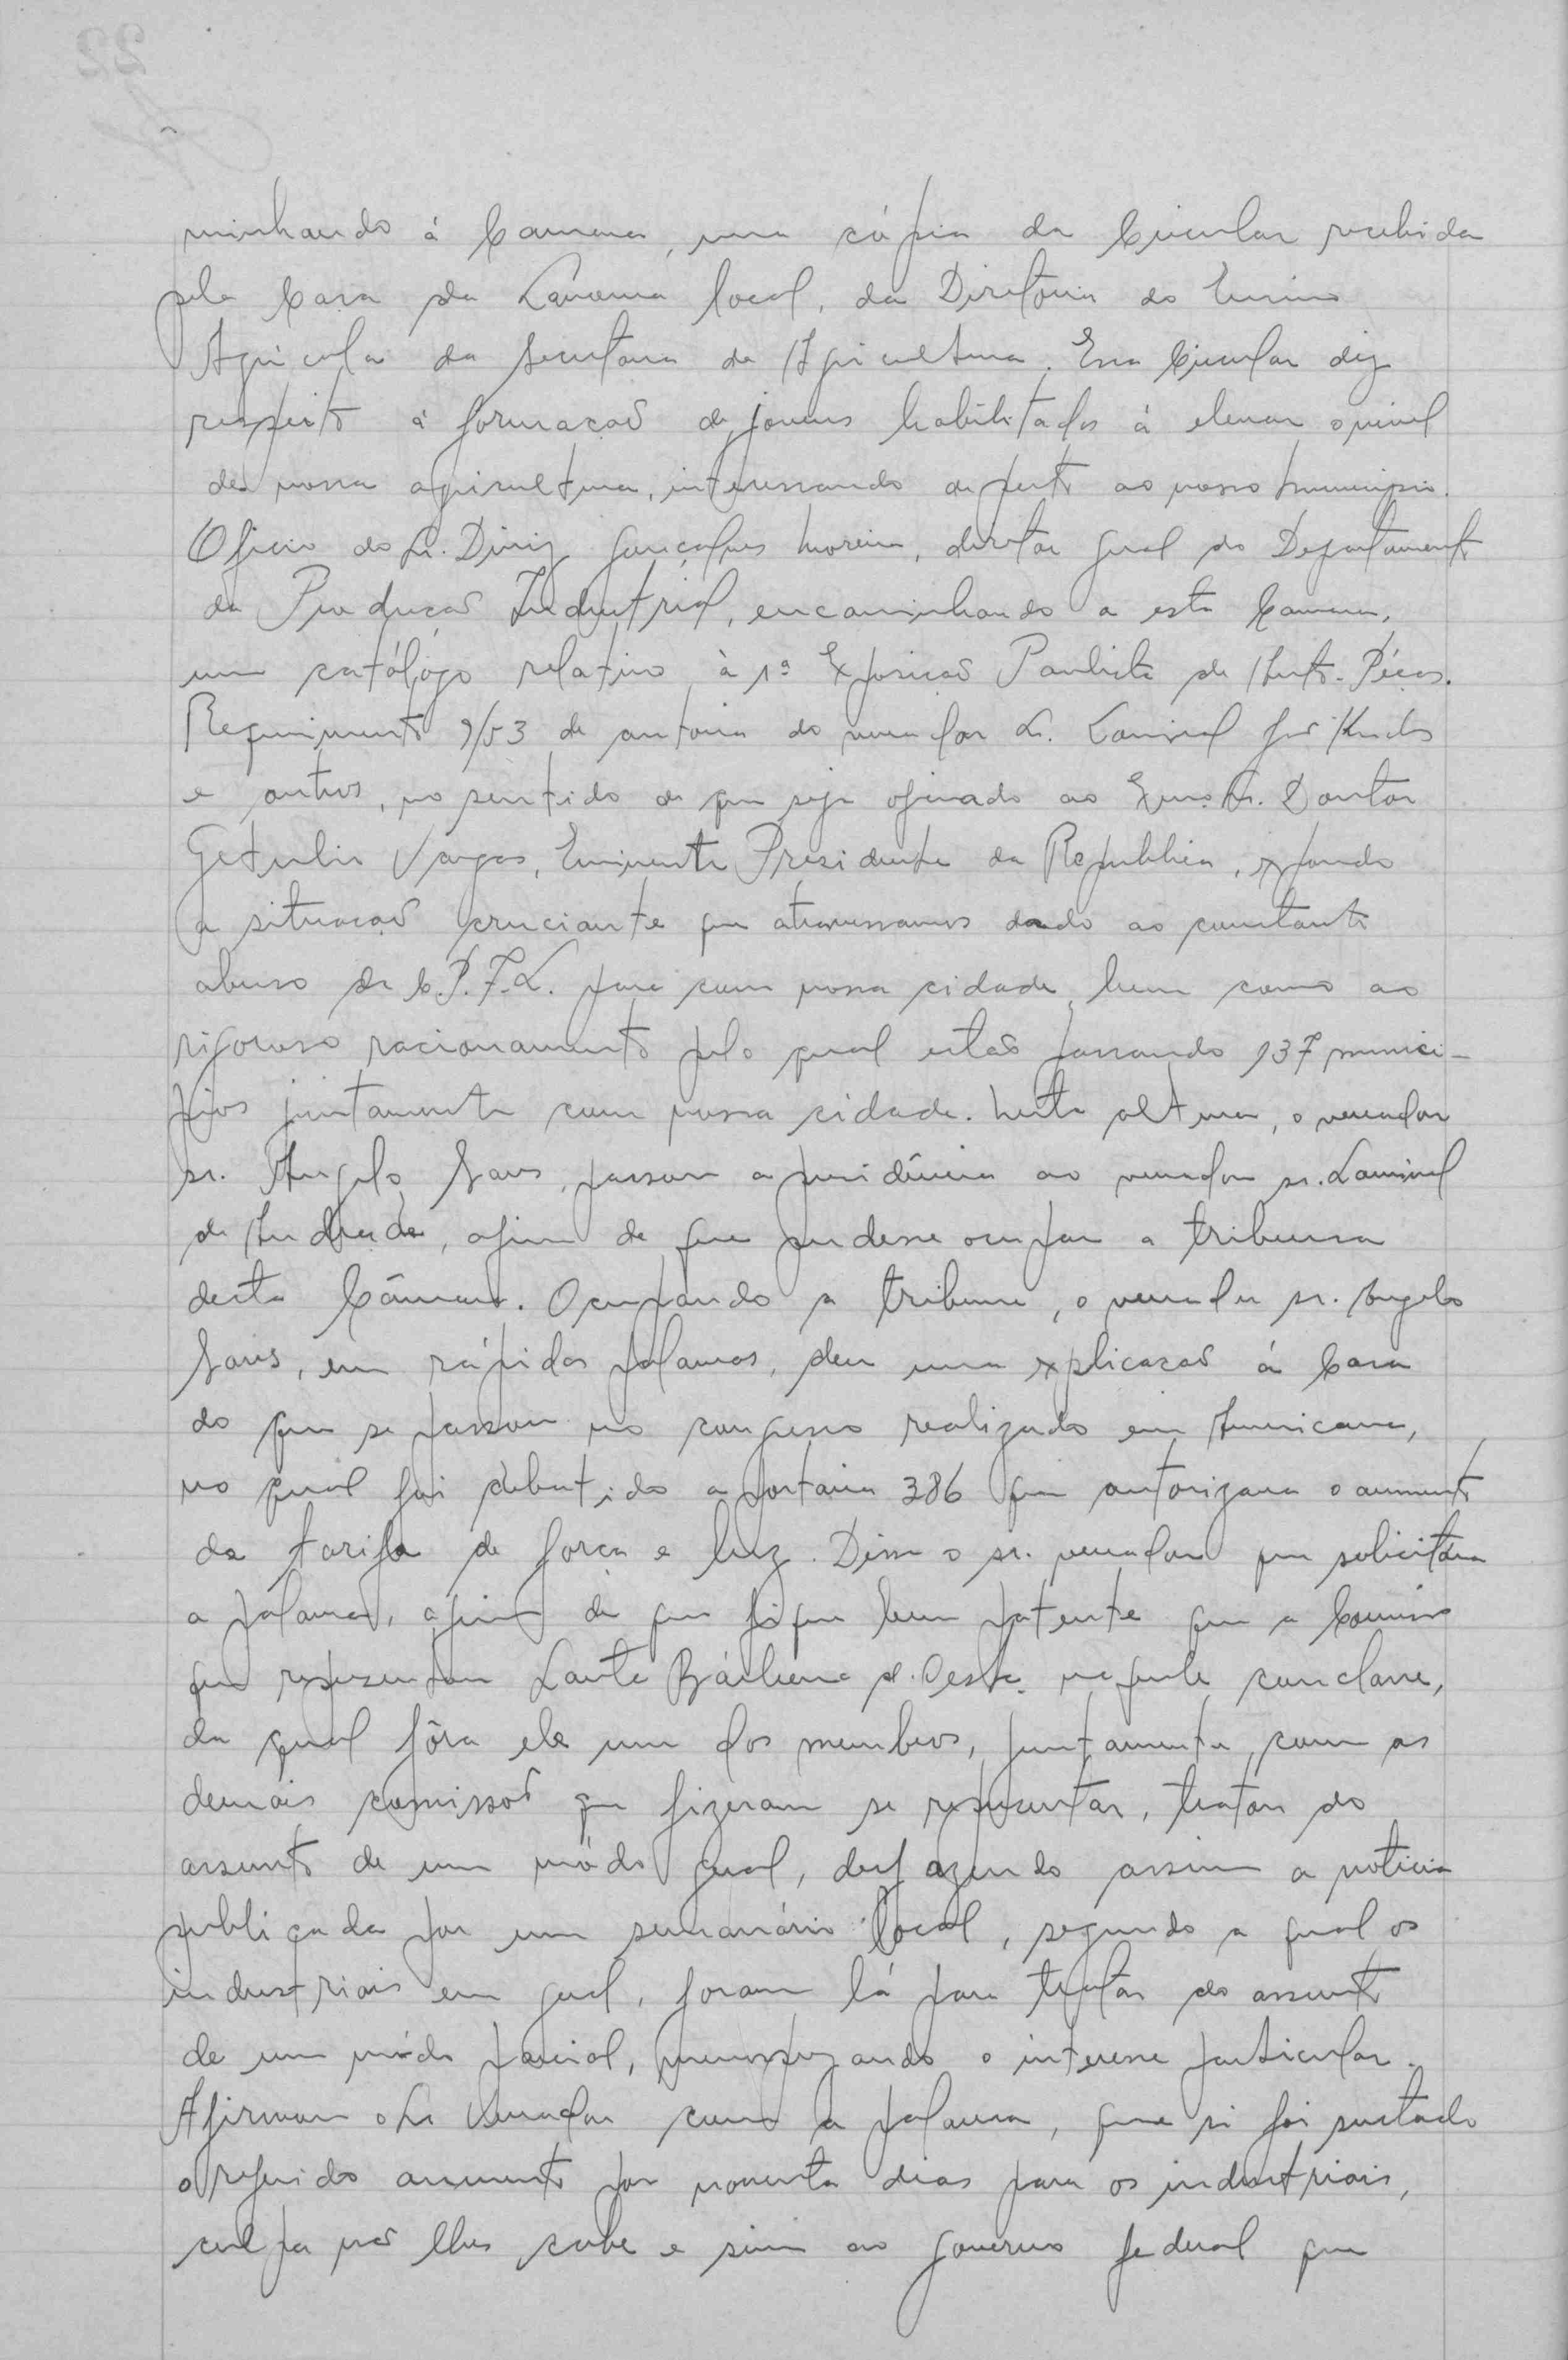 minhando á Camara, uma cópia da Circular recebida
pela Casa da Lavoura local, da Diretoria do Ensino
Agricola da Secretaria da Agricultura. Essa Circular diz
respeito á formação de jovens habilitados á elevar o nivel
de nossa agricultura, interessando de perto ao nosso municipio.
Oficio do Sr. Diniz Gonçalves Moreira, diretor geral do Departamento
da Produção Industrial, encaminhando a esta Camara,
um catálogo relativo à 1ª Exposição Paulista de Auto-Péças.
Requerimento 9/53 de autoria do vereador Sr. Lourival
e outros, no sentido de que seja oficiado ao Exmo. Sr. Doutor
Getulio Vargas, Eminente Presidente da Republica, expondo
a situação cruciante que atravessamos dado ao constante
abuso da C.P.F.L. para com nossa cidade, bem como ao
rigoroso racionamento pelo qual estão passando 137 munici-
pios juntamente com nossa cidade. Nesta altura, o vereador
sr. Angelo Sans, passou a presidência ao vereador sr. Lourival
de Andrade, afim de que pudesse ocupar a tribuna
desta Câmara. Ocupando a tribuna, o vereador sr. Angelo
Sans, em rápidas palavras, deu uma explicação á Casa
do que se passou no congresso realizado em Americana,
no qual foi debatido a portaria 386 que autorizava o aumento
da tarifa de força e luz. Disse o sr. vereador que solicitára
a palavra, afim de que fique bem patente que a Comissão
que representou Santa Bárbara d'Oeste, naquele conclave,
da qual fôra ele um dos membros, juntamente com as
demais comissões que fizeram se representar, tratou do
assunto de um módo geral, desfazendo assim a noticia
publicada por um semanário local, segundo a qual os
industriais em geral, foram lá para tratar do assunto
de um módo parcial, o interesse particular.
Afirmou o Sr Vereador com a palavra, que si foi sustado
o referido aumento por noventa dias para os industriais,
culpa não lhes cabe e sim ao governo federal que